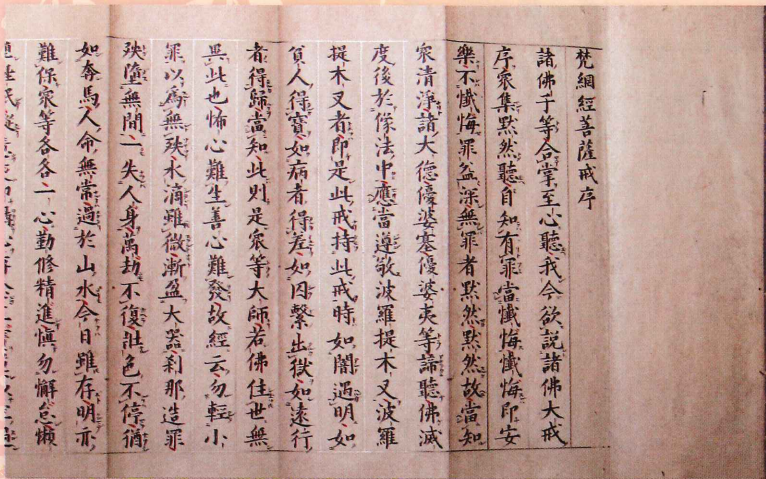 梵網經菩薩戒序
諸佛子等合掌至心聽我今欲說諸佛大戒
序衆集默然聽自知有罪當懺悔懺悔即安
樂不懺悔罪益深無罪者默然默然故當知
衆清淨諸大德優婆塞優婆夷等諦聽佛滅
度後於像法中應當尊敬波羅提木叉波羅
提木叉者即是此戒持此戒時如闇遇明如
貧人得寶如病者得差如囚繫出獄如遠行
者得歸當知此則是衆等大師若佛住世無
異此也怖心難生善心難發故經云勿輕小
罪以爲無殃水滴雖微漸盈大器刹那造罪
殃墮無間一失人身萬劫不復壯色不停猶
如奔馬人命無常過於山水今日雖存明亦
難保衆等各各一心勤修精進愼勿懈怠懶